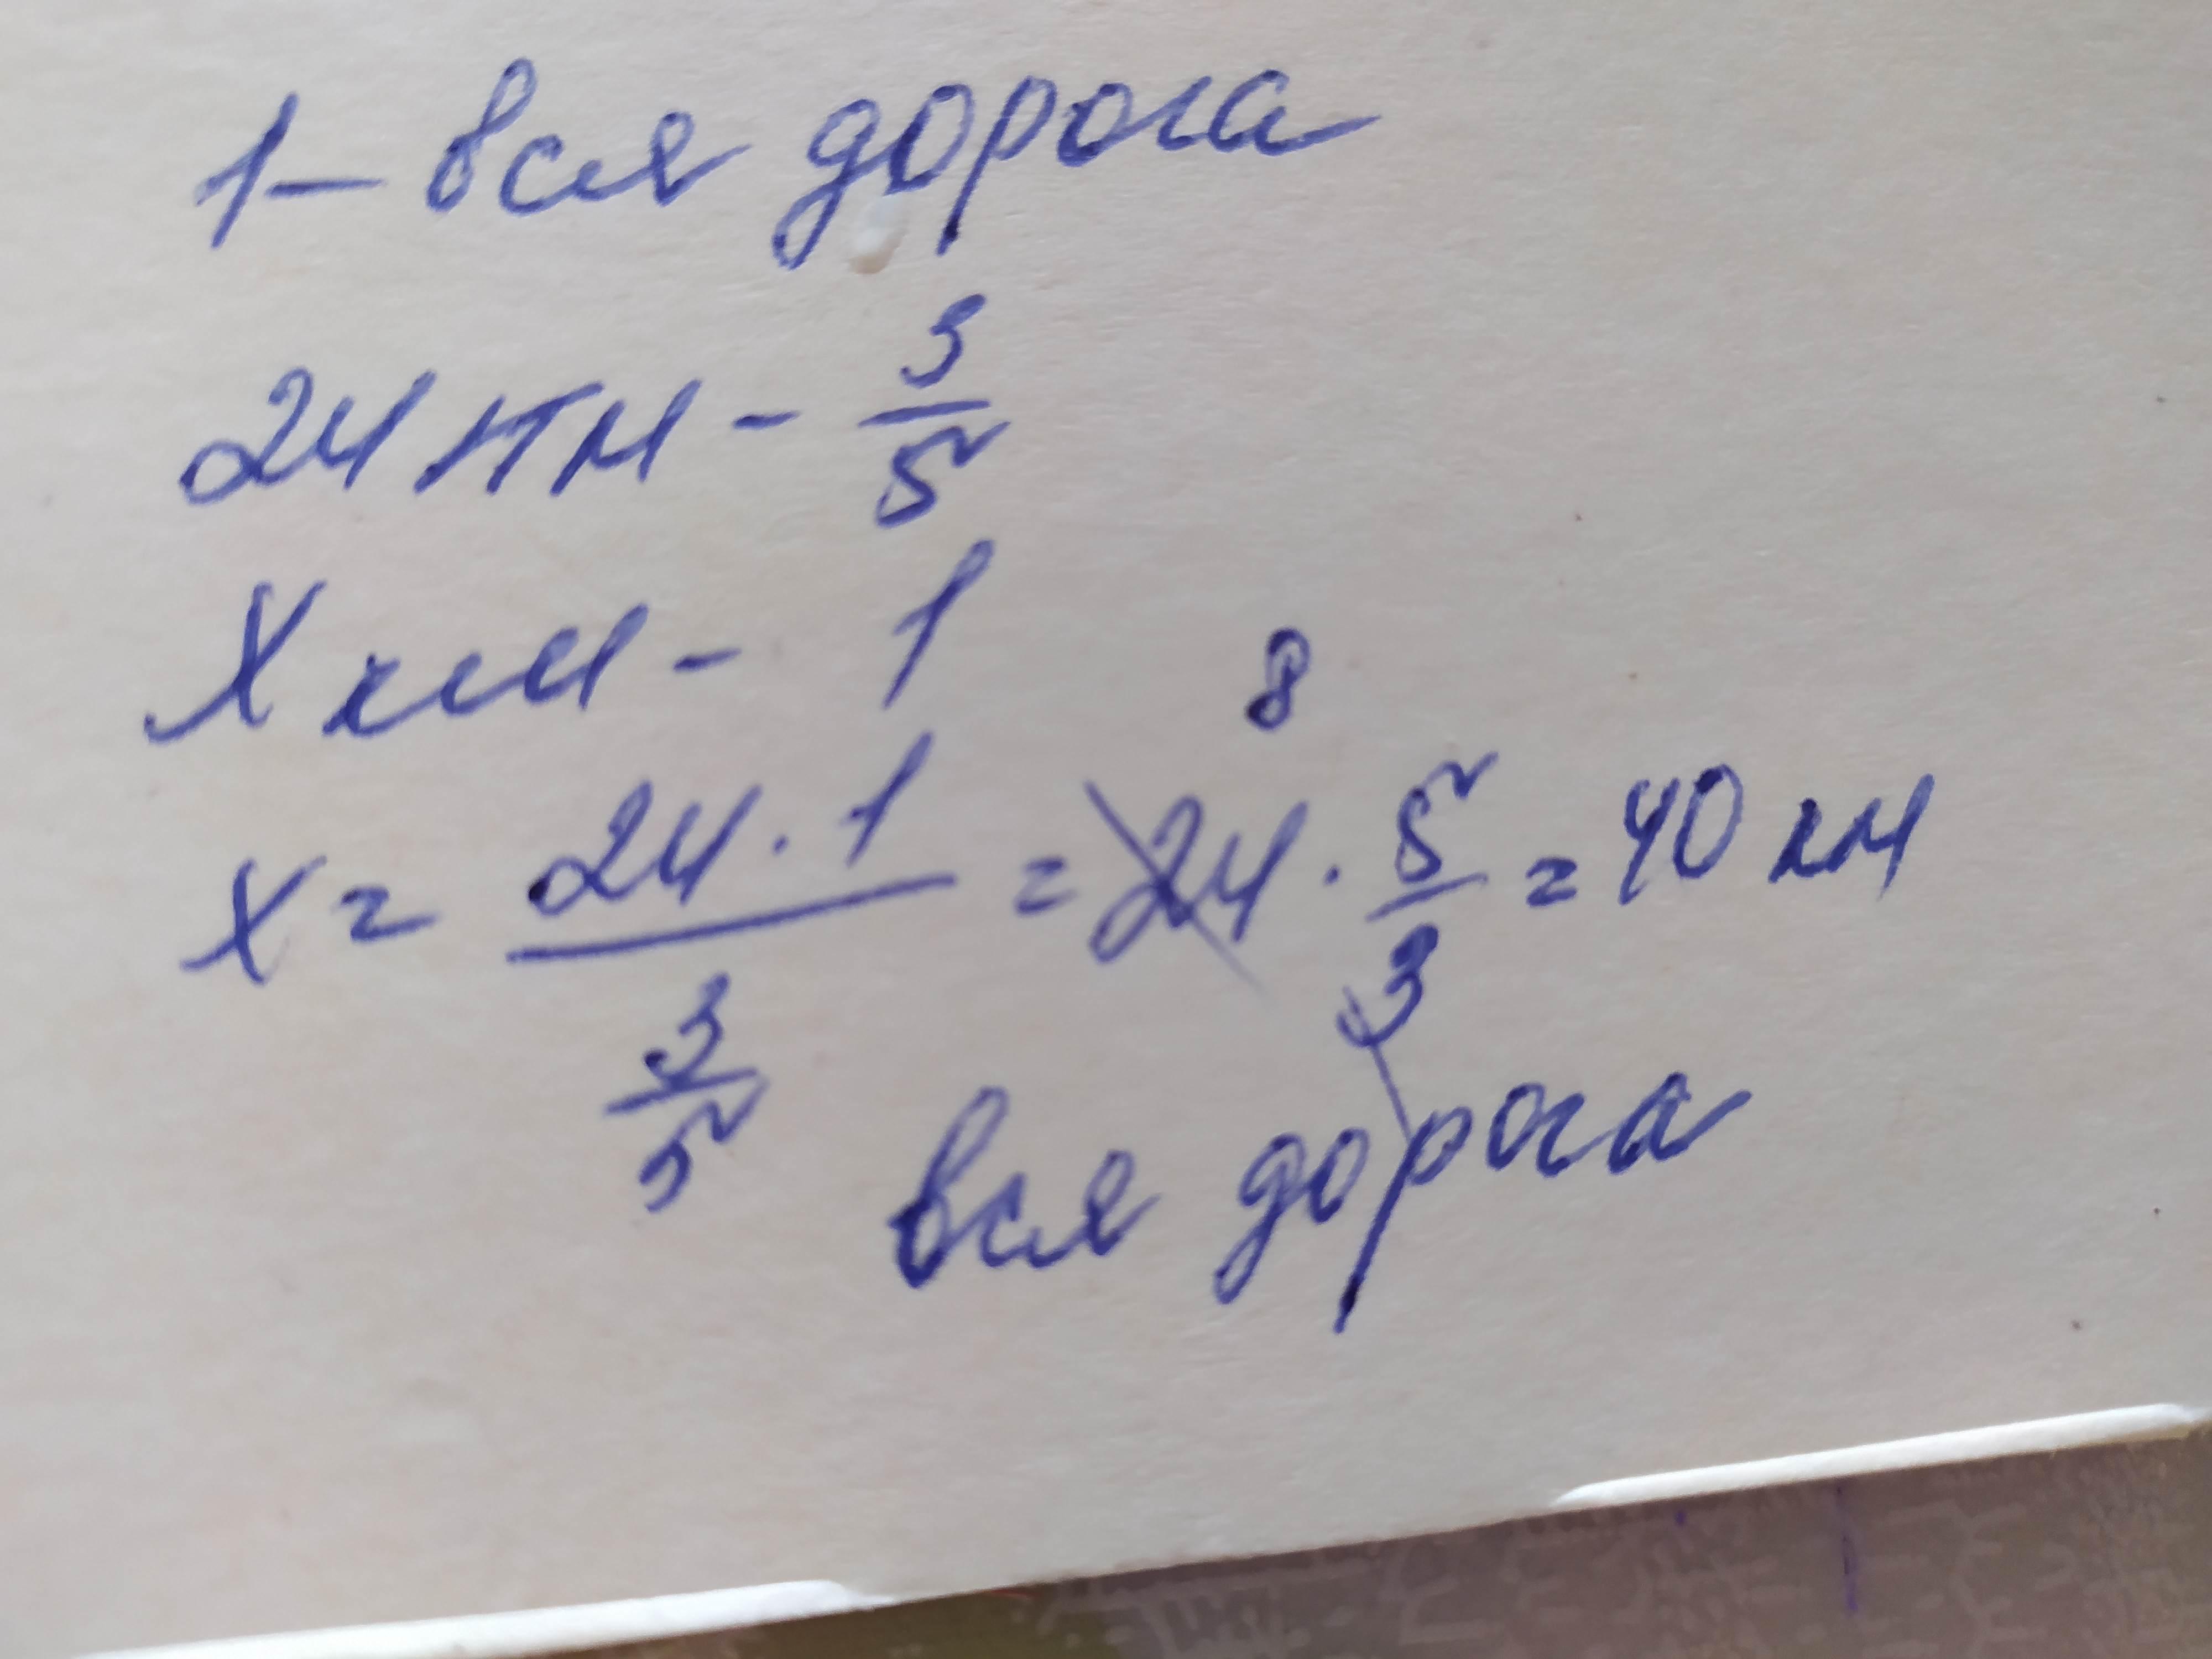 1 – вся дорога
24 км - 3/5
X км - 1
8
X = 24 · 1 / 3/5 = 24 · 5/3 = 40 км
вся дорога